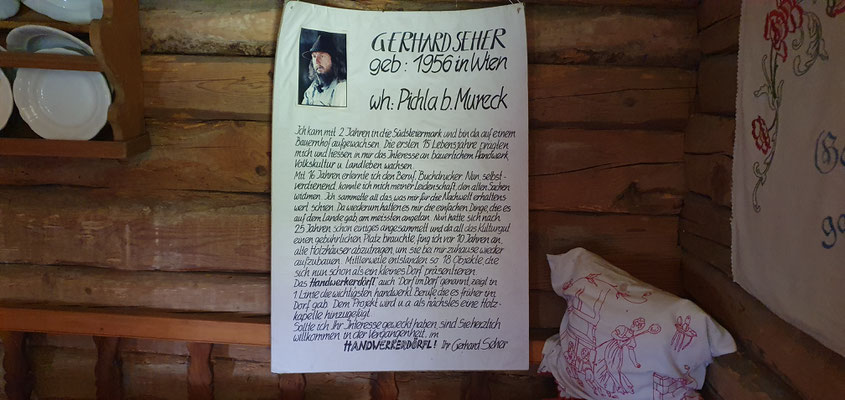 GERHARD SEHER
geb: 1956 in Wien
wh: Pichla b. Mureck
Ich kam mit 2 Jahren in die Südsteiermark und bin da auf einem
Bauernhof aufgewachsen. Die ersten 15 Lebensjahre prägten
mich und liessen in mir das Interesse an bäuerlichem Handwerk
Volkskultur u. Landleben wachsen.
Mit 16 Jahren erlernte ich den Beruf Buchdrucker. Nun, selbst-
verdienend, konnte ich mich meiner Leidenschaft, den alten Sachen
widmen. Ich sammelte all das was mir für die Nachwelt erhaltens
wert schien. Da wiederum hatten es mir die einfachen Dinge, die es
auf dem Lande gab, am meissten angetan. Nun hatte sich nach
25 Jahren schon einiges angesammelt und da all das Kulturgut
einen gebührlichen Platz brauchte, fing ich vor 10 Jahren an
alte Holzhäuser abzutragen, um sie bei mir zuhause wieder
aufzubauen. Mittlerweile entstanden so 18 Objekte die
sich nun schon als ein kleines Dorf präsentieren.
Das Handwerkerdörfl auch "Dorf im Dorf" genannt, zeigt in
1 Linie die wichtigsten handwerkl. Berufe die es früher im
Dorf gab. Dem Projekt wird u.a. als nächstes eine Holz-
kapelle hinzugefügt.
Sollte ich Ihr Interesse geweckt haben, sind Sie herzlich
willkommen in der Vergangenheit, im
HANDWERKERDÖRFL! Ihr Gerhard Seher